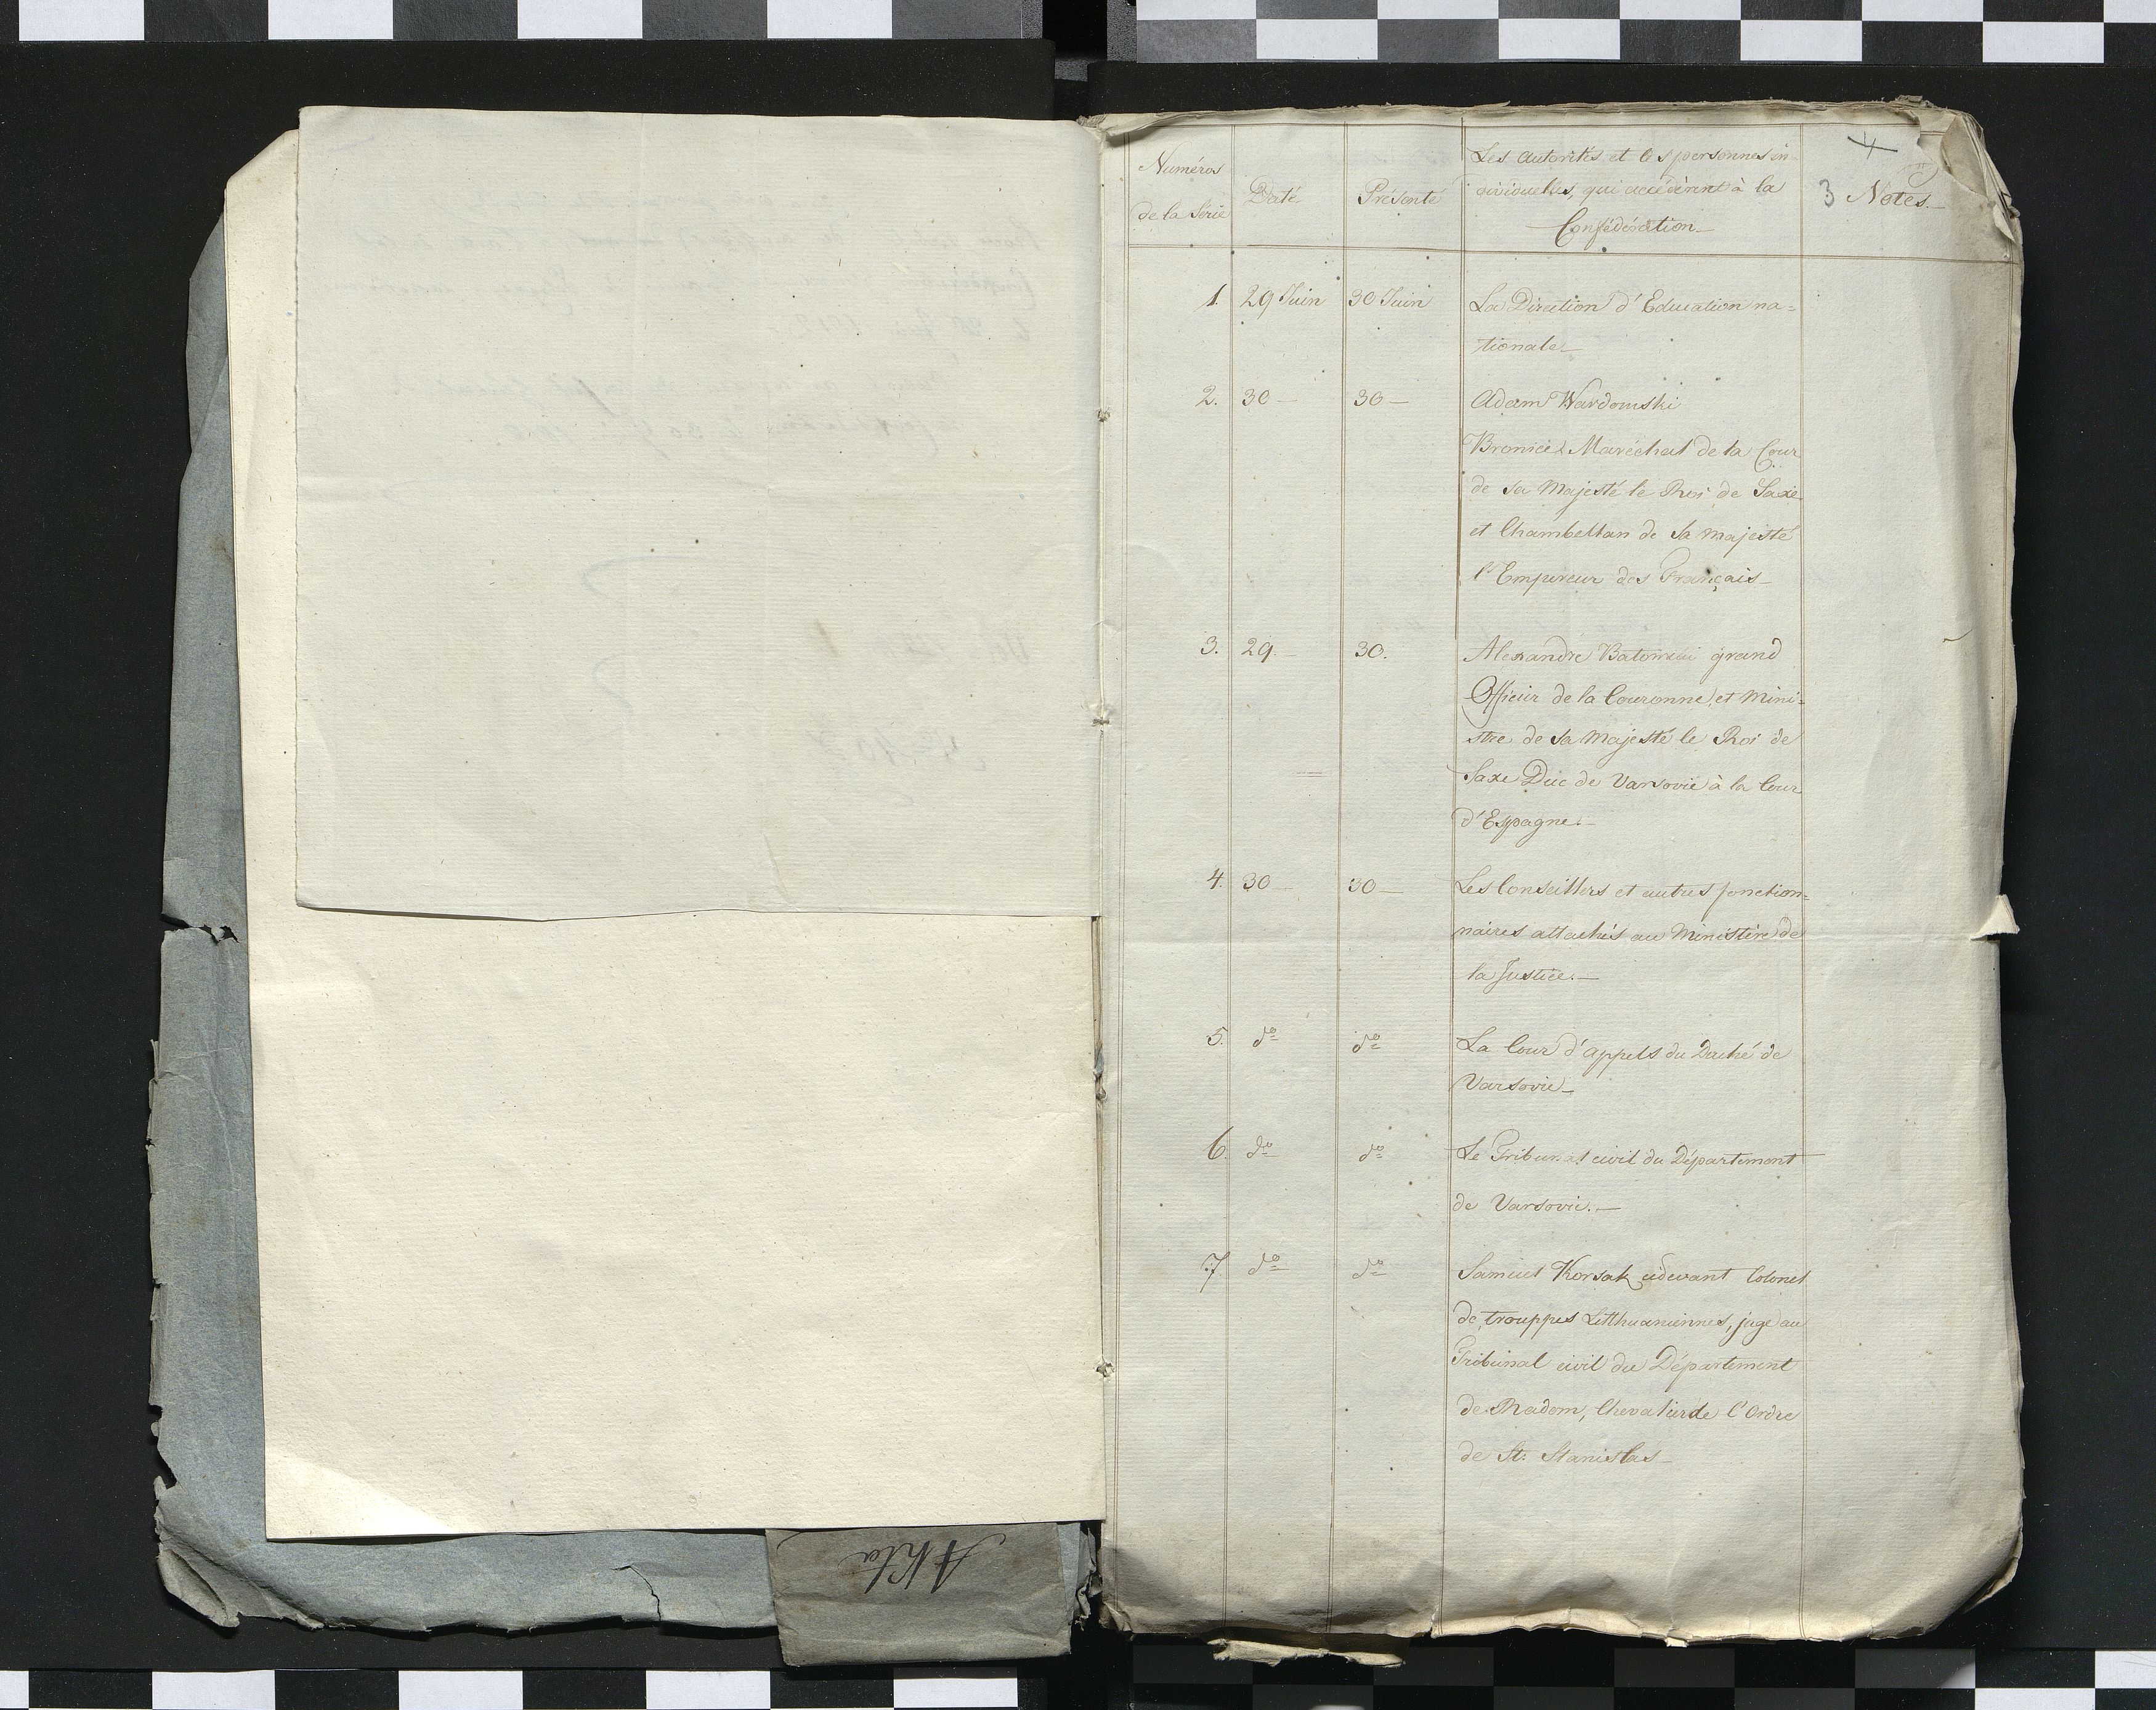 4
3 Notes.
Numéros
de la Série
Daté
Présenté
Les autorités et les personnes in-
dividuelles, qui accédèrent à la
Confédération
1. 29 Juin 30 Juin La Direction d'Education na=
tionale
2. 30 — 30 — Adam Wardomski
Bronicé Maréchal de la Cour
de Sa Majesté le Roi de Saxe
et Chambellan de Sa Majesté
l'Empereur des Français
3. 29. — 30. Alexandre Batowski grand
Officier de la Couronne, et Mini=
stre de Sa Majesté le Roi de
Saxe Duc de Varsovie à la Cour
d'Espagne.—
4. 30 — 30 — Les Conseillers et autres fonction=
naires attachés au Ministère de
la Justice.—
5. do do La Cour d'appels du Duché de
Varsovie
6. do do Le Tribunal civil du Département
de Varsovie.—
7. do do Samuel Korsak cidevant Colonel
de trouppes Litthuaniennes, juge au
Tribunal civil du Département
de Radom, Chevalier de l'Ordre
de St. Stanislas
Akta